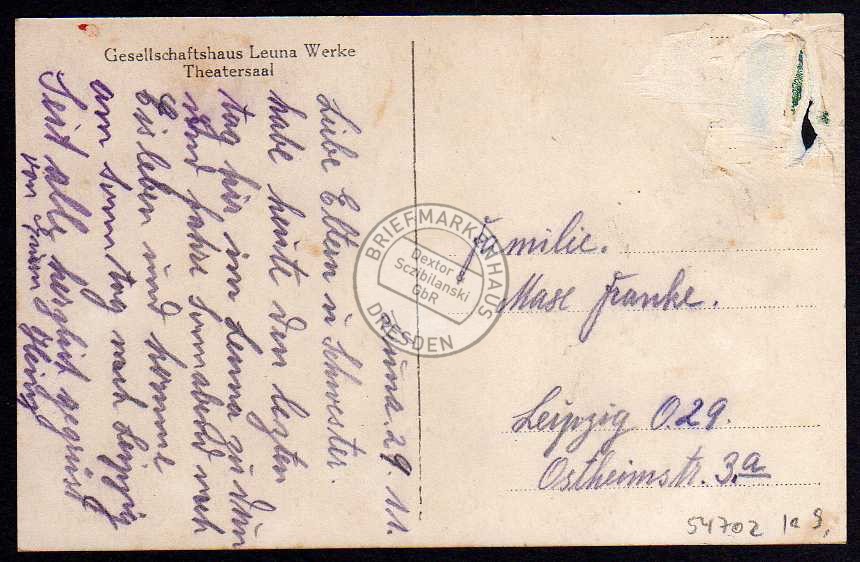 Gesellschaftshaus Leuna Werke
Theatersaal
Leuna. 29. 11.
Liebe Eltern u Schwester.
habe heute den lezten
tag hir in Leuna zu tun
und fahre sonnabend nach
Eisleben und komme
am sonntag nach Leipzig
Seit alle herzlist gegrüst
von
Familie.
Max Franke.
Leipzig O.29.
Ostheimstr. 3.a
54702
BRIEFMARKENHAUS
Dextor &
Sczibilanski
GbR
DRESDEN